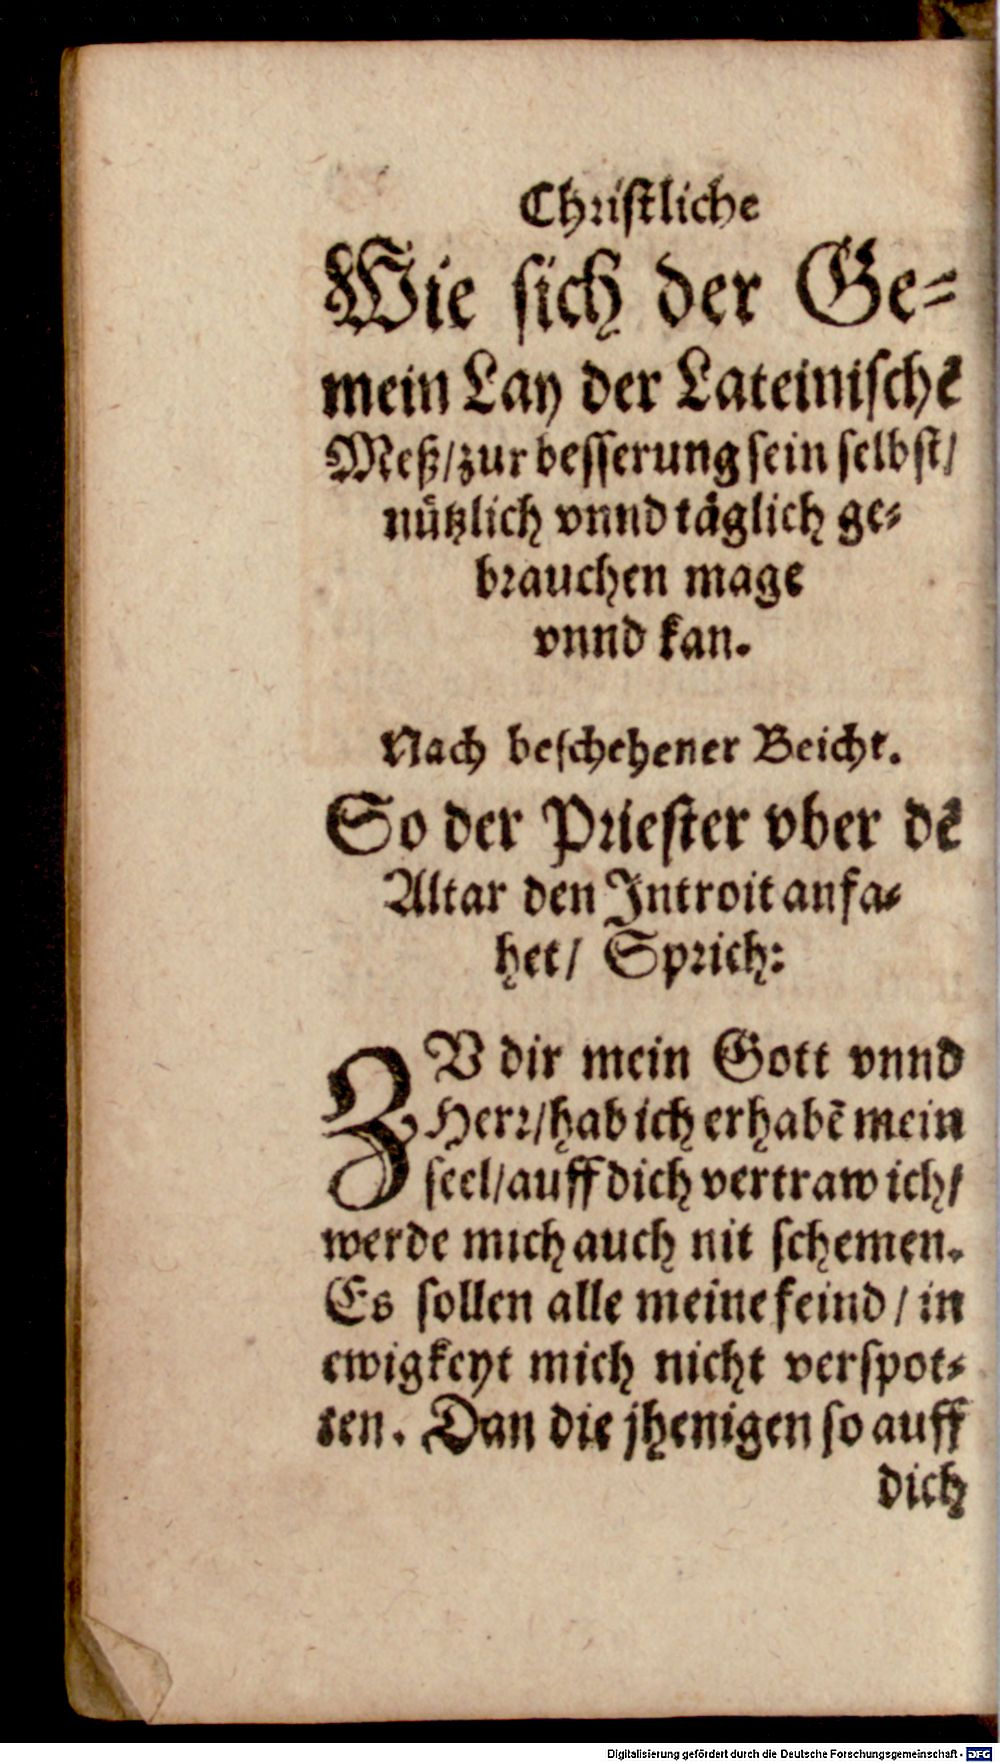 Christliche
Wie sich der Ge-
mein Lay der Lateinischē
Meß/zur besserung sein selbst/
nützlich vnnd täglich ge-
brauchen mage
vnnd kan.
Nach beschehener Beicht.
So der Priester vber dē
Altar den Introit anfa-
het/ Sprich:
ZV dir mein Gott vnnd
Herr/hab ich erhabē mein
seel/auff dich vertraw ich/
werde mich auch nit schemen.
Es sollen alle meine feind/in
ewigkeyt mich nicht verspot-
ten. Dan die jhenigen so auff
dich
Digitalisierung gefördert durch die Deutsche Forschungsgemeinschaft - DFG